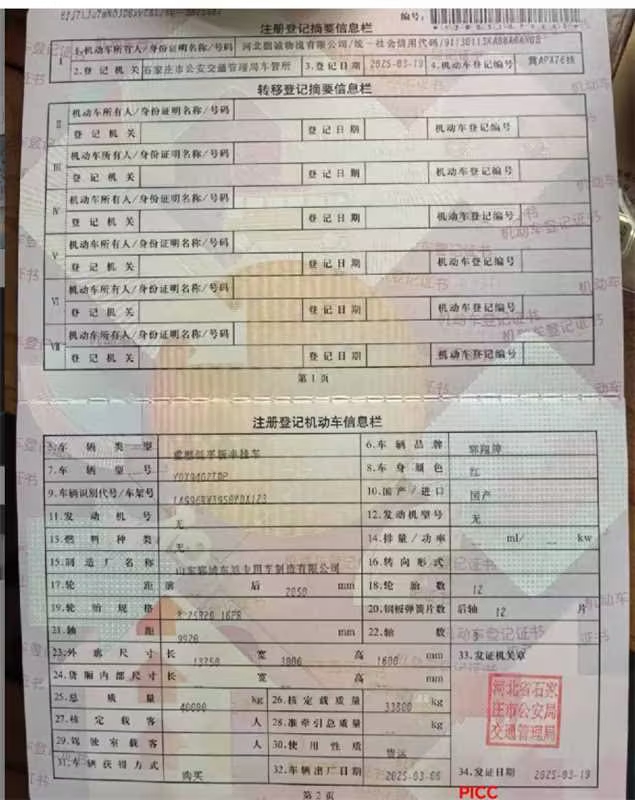 编号:
注册登记摘要信息栏
I 1.机动车所有人/身份证明名称/号码 物流有限公司/统一社会信用代码/
2.登记机关 石家庄市公安交通管理局车管所 3.登记日期 2025-03-19 4.机动车登记编号
转移登记摘要信息栏
II 机动车所有人/身份证明名称/号码
登记机关 登记日期 机动车登记编号
III 机动车所有人/身份证明名称/号码
登记机关 登记日期 机动车登记编号
IV 机动车所有人/身份证明名称/号码
登记机关 登记日期 机动车登记编号
V 机动车所有人/身份证明名称/号码
登记机关 登记日期 机动车登记编号
VI 机动车所有人/身份证明名称/号码
登记机关 登记日期 机动车登记编号
VII 机动车所有人/身份证明名称/号码
登记机关 登记日期 机动车登记编号
第1页
注册登记机动车信息栏
5.车辆类型 6.车辆品牌
7.车辆型号 8.车身颜色 红
9.车辆识别代号/车架号 10.国产/进口 国产
11.发动机号 无 12.发动机型号 无
13.燃料种类 无 14.排量/功率 ml/ kw
15.制造厂名称 专用车制造有限公司 16.转向形式
17.轮距 前 后 2050 mm 18.轮胎数 12
19.轮胎规格 20.钢板弹簧片数 后轴 12 片
21.轴距 9920 mm 22.轴数
23.外廓尺寸 长 13750 宽 高 1600 mm 33.发证机关章
24.货厢内部尺寸 长 宽 高 mm
25.总质量 40000 kg 26.核定载质量 kg
27.核定载客 人 28.准牵引总质量 kg
29.驾驶室载客 人 30.使用性质 货运
31.车辆获得方式 购买 32.车辆出厂日期 34.发证日期 2025-03-19
河北省石家
庄市公安局
交通管理局
第2页
PICC